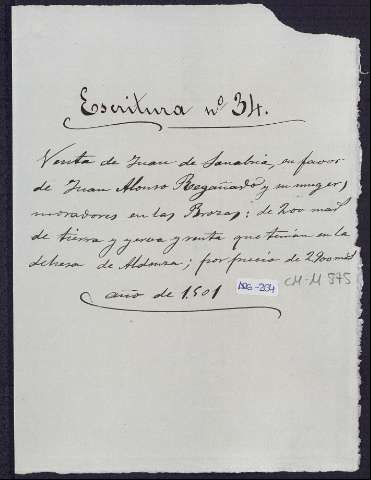 Escritura nº 34.
Venta de Juan de Sanabria, en favor
de Juan Alonso Regañado y su muger,
moradores en las Brozas: de 200 mas.
de tierra y yerva y renta que tenian en la
dehesa de Aldonza; por precio de 2200 mas
año de 1501
ADG-204
CM-M 375